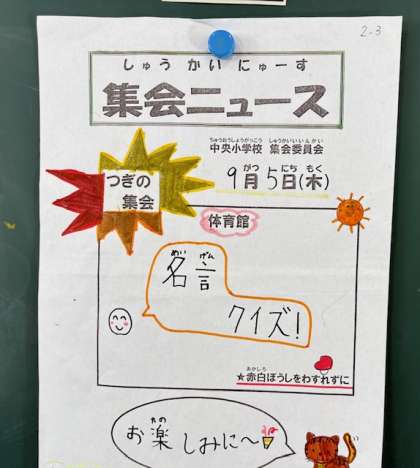 2-3
しゅう かい にゅーす
集会ニュース
ちゅうおうしょうがっこう しゅうかいいいんかい
中央小学校 集会委員会
がつ にち もく
9月5日(木)
つぎの
集会
体育館
めい げん
名言
クイズ!
あかしろ
★赤白ぼうしをわすれずに
たの
お楽しみに〜